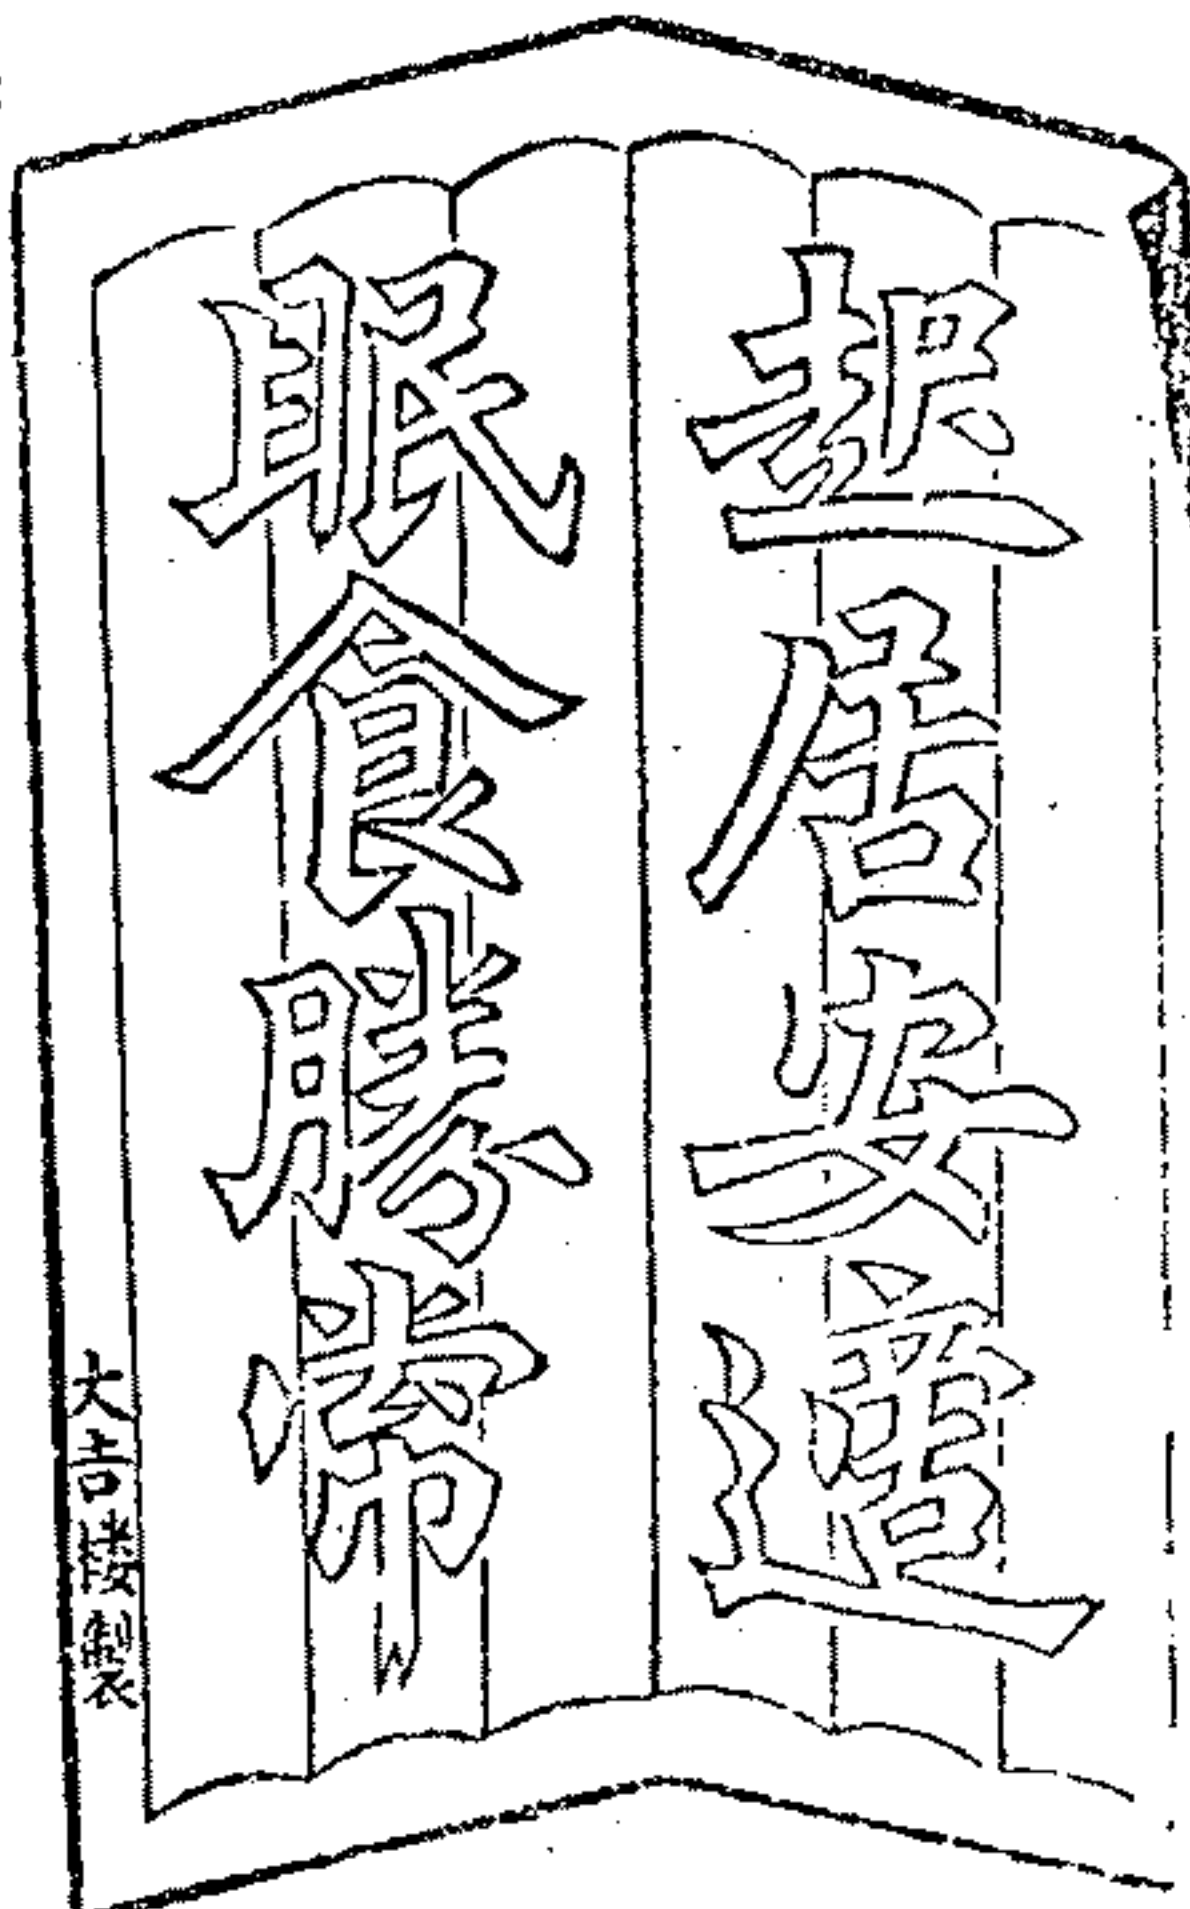 起居安適
眠食勝常
大吉陵製